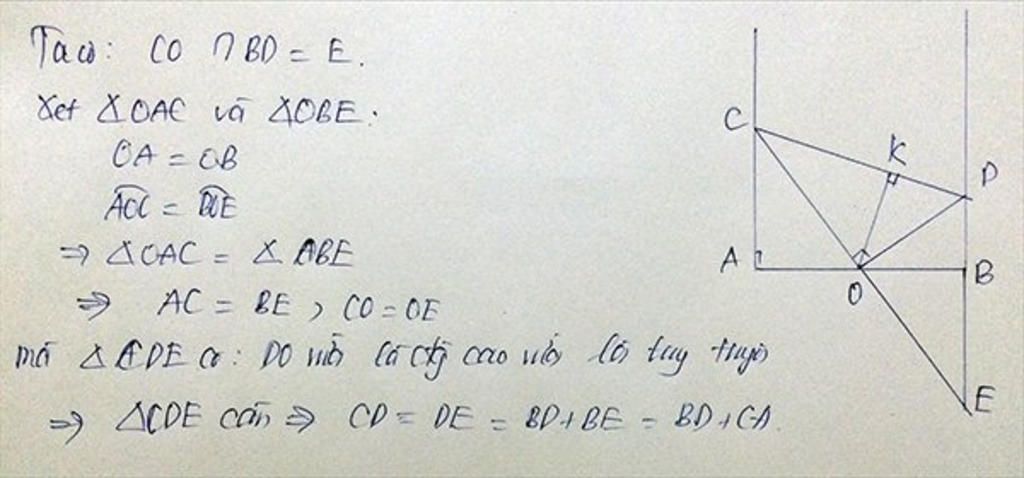 Ta có: CO ∩ BD = E.
Xét △OAC và △OBE:
OA = OB
AOC = BOE
⇒ △OAC = △ABE
⇒ AC = BE, CO = OE
mà △CDE có: DO vừa là đg cao vừa là tuy thuyến
⇒ △CDE cân ⇒ CD = DE = BD + BE = BD + CA.
C
K
D
A
O
B
E